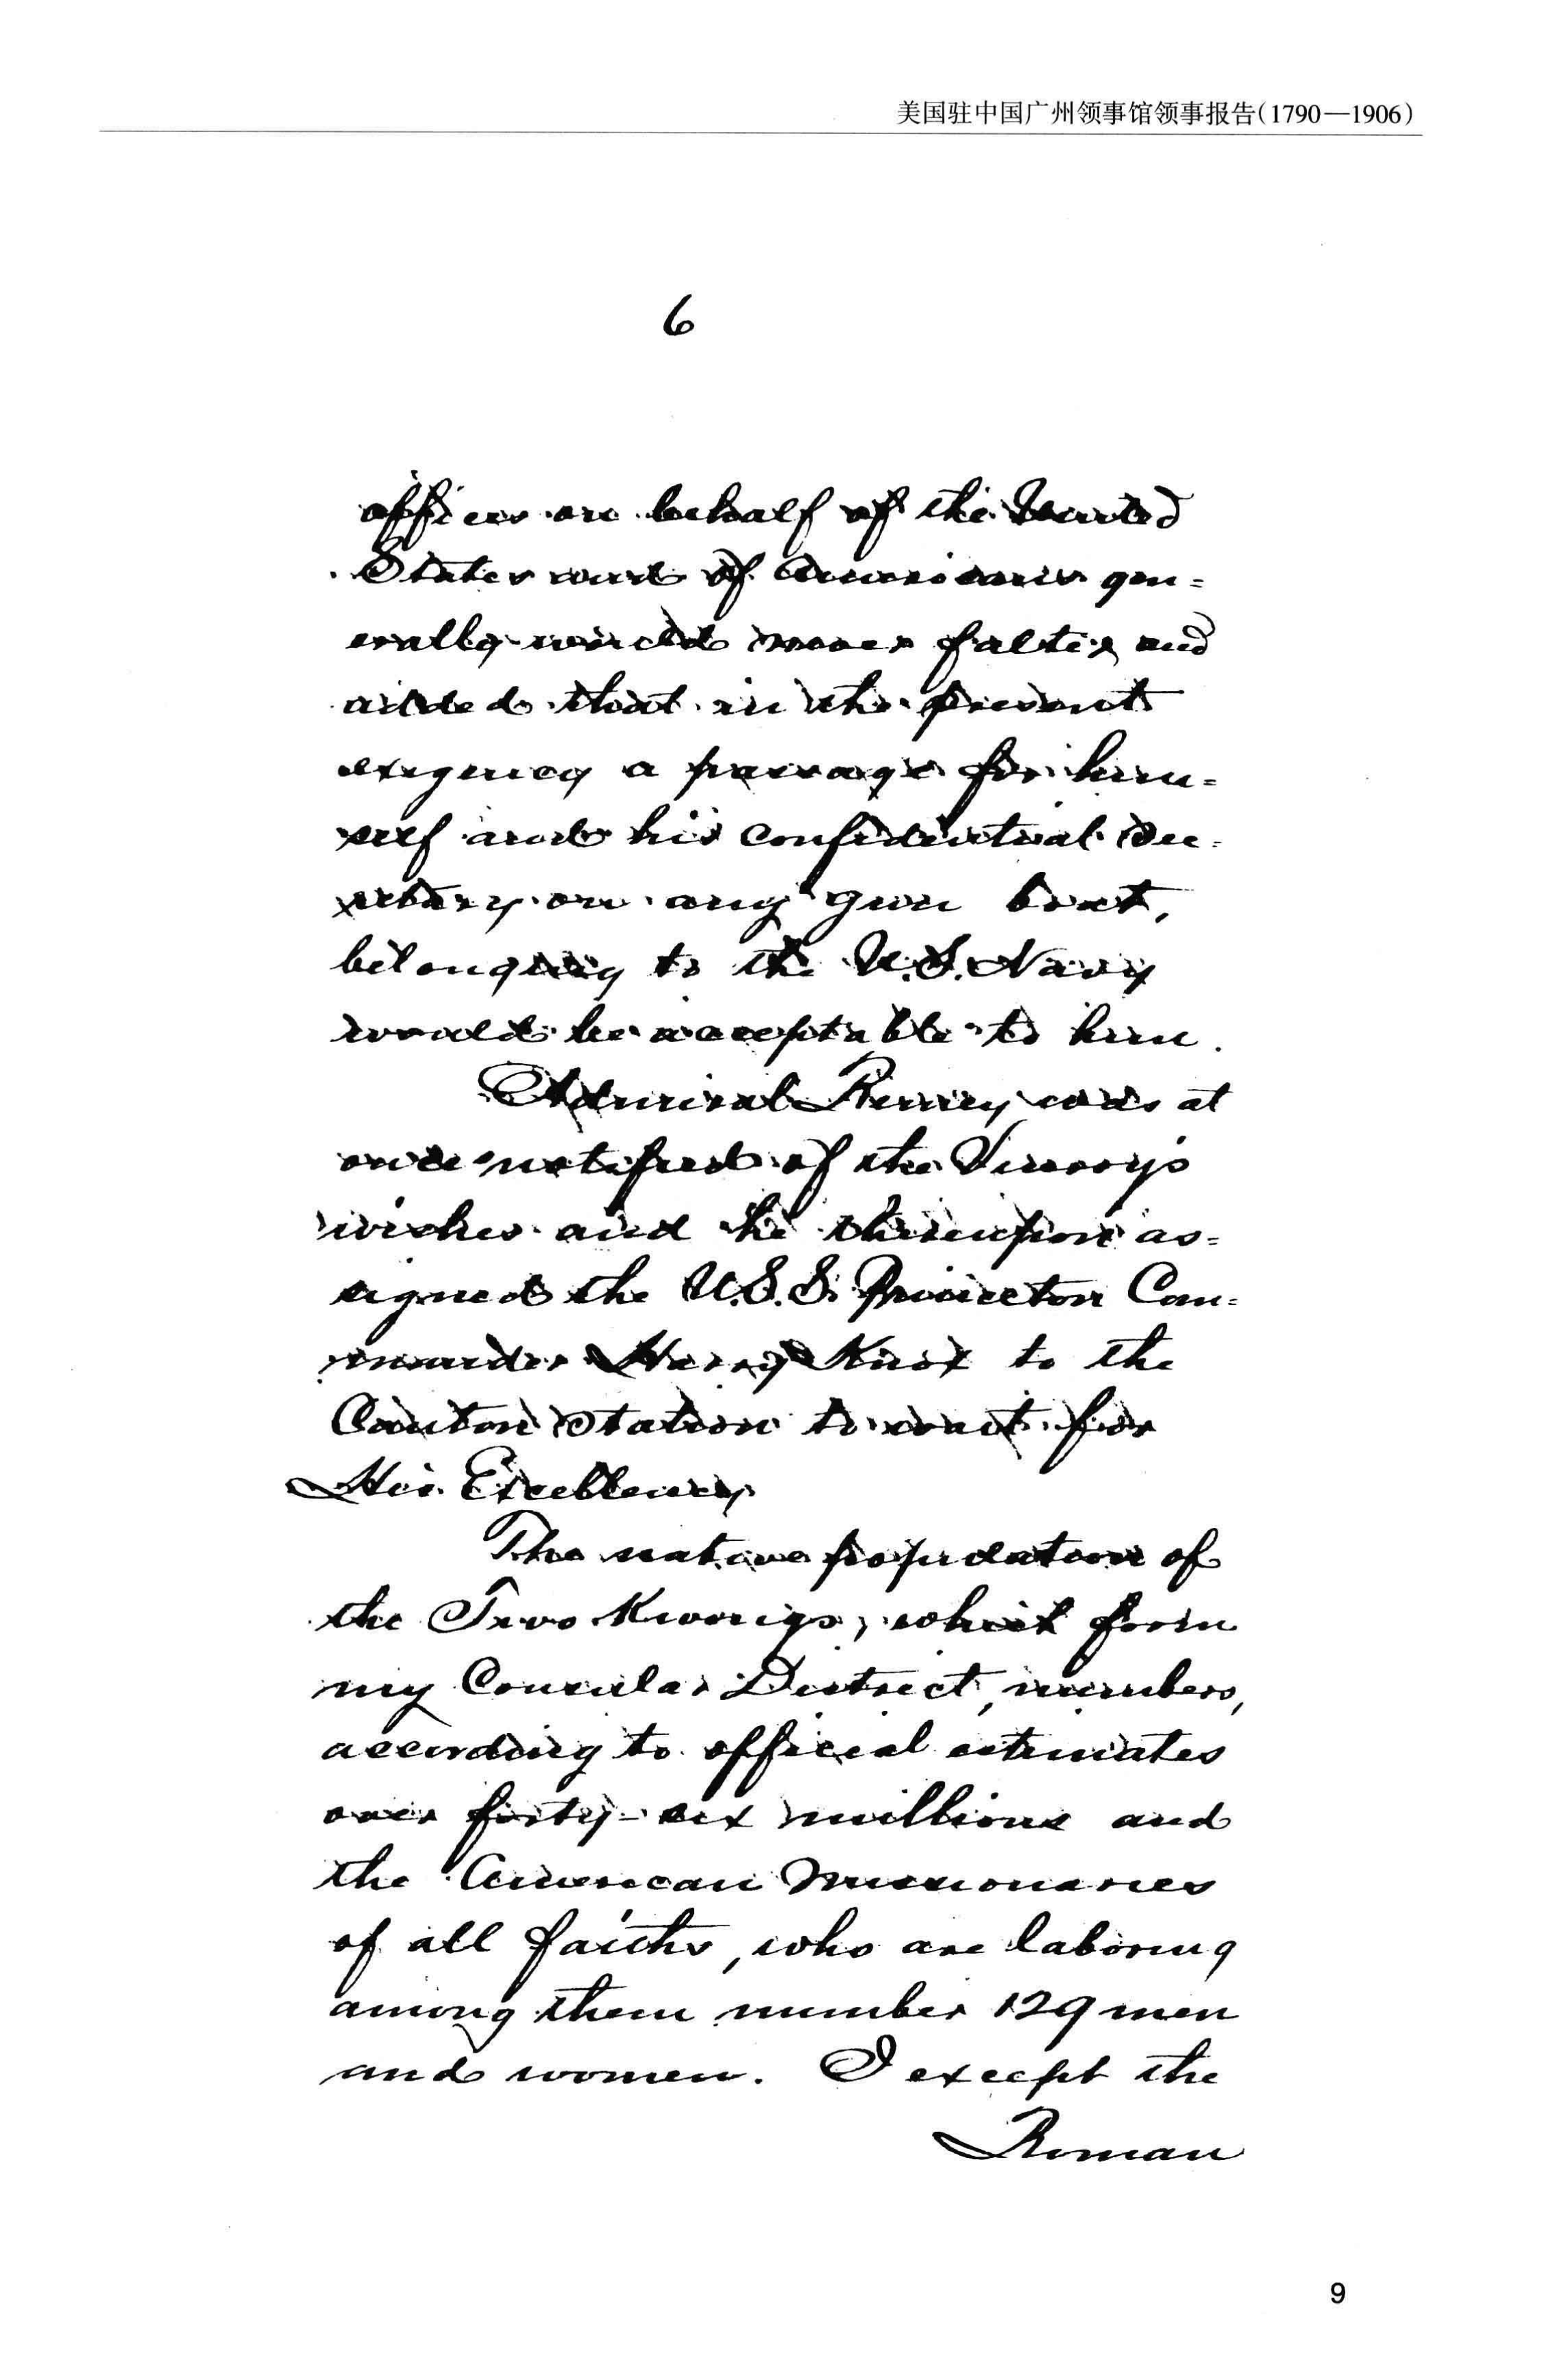 美国驻中国广州领事馆领事报告(1790—1906)
6
offices on behalf of the United
States and of Americans gen=
erally would never falter and
added that in the present
exigency a passage for him=
self and his confidential Sec=
retary on any gun boat,
belonging to the U.S. Navy
would be acceptable to him.
Admiral Remey was at
once notified of the Viceroy's
wishes and he thereupon as=
signed the U.S.S. Princeton Com=
mander Harry Knox to the
Canton Station to wait for
His Excellency
The native population of
the Two Kwongs, which form
my Consular District, numbers,
according to official estimates
over forty-six millions and
the American Missionaries
of all faiths, who are laboring
among them number 129 men
and women. I except the
Roman
9